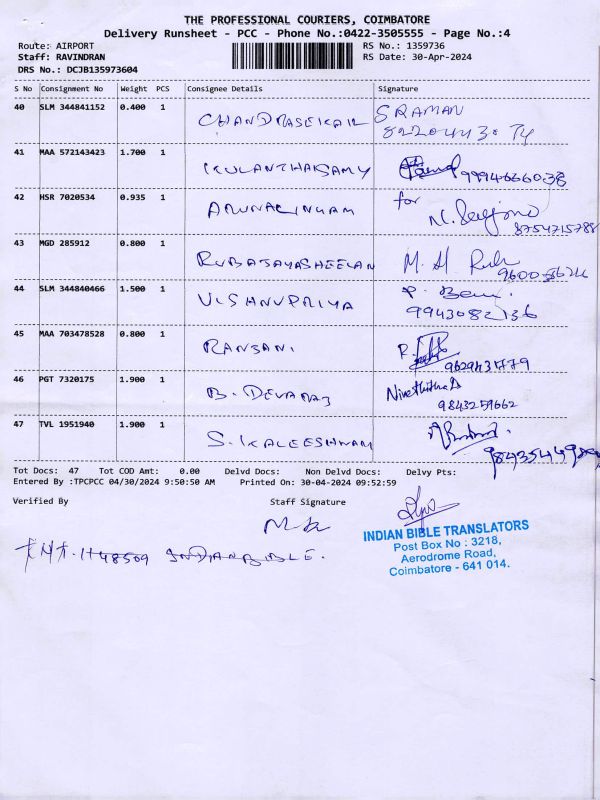 THE PROFESSIONAL COURIERS, COIMBATORE
Delivery Runsheet - PCC - Phone No.:0422-3505555 - Page No.:4
Route: AIRPORT RS No.: 1359736
Staff: RAVINDRAN RS Date: 30-Apr-2024
DRS No.: DCJB135973604
S No Consignment No Weight PCS Consignee Details Signature
40 SLM 344841152 0.400 1 CHANDRASEKAR S RAMAN
41 MAA 572143423 1.700 1 KULANTHAISAMY 9994666038
42 HSR 7020534 0.935 1 ARUNALINGAM for
8754715788
43 MGD 285912 0.800 1 RUBAJAYASHEELAN M. H
44 SLM 344840466 1.500 1 VISHNUPRIYA P.
9943082136
45 MAA 703478528 0.800 1 RANJANI. R.
46 PGT 7320175 1.900 1 B. DEVARAJ Nivethitha D
9843259662
47 TVL 1951940 1.900 1 S. KALEESHWARI
Tot Docs: 47 Tot COD Amt: 0.00 Delvd Docs: Non Delvd Docs: Delvy Pts:
Entered By :TPCPCC 04/30/2024 9:50:50 AM Printed On: 30-04-2024 09:52:59
Verified By Staff Signature
INDIAN BIBLE TRANSLATORS
Post Box No : 3218,
Aerodrome Road,
Coimbatore - 641 014.
1148509 INDIAN BIBLE.